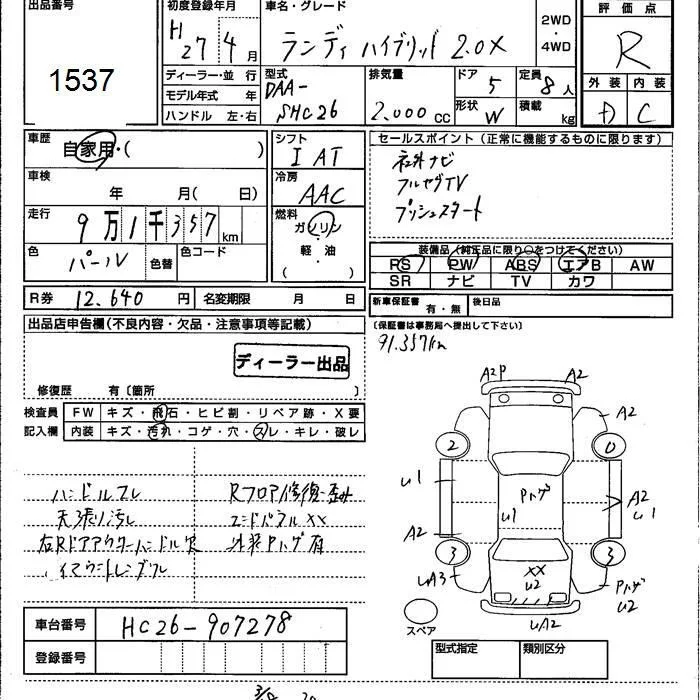 出品番号
1537
初度登録年月
H 27 4 月
車名・グレード
ランディ ハイブリッド 2.0X
2WD
・
4WD
評価点
R
ディーラー・並 行
モデル年式 年
ハンドル 左・右
型式
DAA-
SHC26
排気量
2.000 CC
ドア 5
形状 W
定員 8 人
積載 kg
外装 内装
D C
車歴
自家用・( )
車検
年 月( 日)
走行
9万1千357 km
色
パール
色替
色コード
シフト
I AT
冷房
AAC
燃料
ガソリン
・
軽・油
( )
セールスポイント(正常に機能するものに限ります)
社外ナビ
フルセグTV
プッシュスタート
装備品(純正品に限り○をつけてください)
RS PW ABS エアB AW
SR ナビ TV カワ
R券 12.640 円 名変期限 月 日
新車保証書 有・無 後日品
(保証書は事務局へ提出して下さい)
91.357km
出品店申告欄(不良内容・欠品・注意事項等記載)
ディーラー出品
修復歴 有〔箇所 〕
検査員
記入欄
FW キズ・飛石・ヒビ割・リペア跡・X要
内装 キズ・汚れ・コゲ・穴・スレ・キレ・破レ
ハンドルスレ
天張り汚レ
右Rドアアウターハンドル欠
Rフロア修復歪み
エンドパネルXX
外装Pハゲ有
A2P
A2
A2
2
0
u1
u1
Pハゲ
A2
u1
A2
3
3
uA3
XX
u2
Pハゲ
u2
uA2
スペア
車台番号 HC26-907278
登録番号
型式指定
類別区分